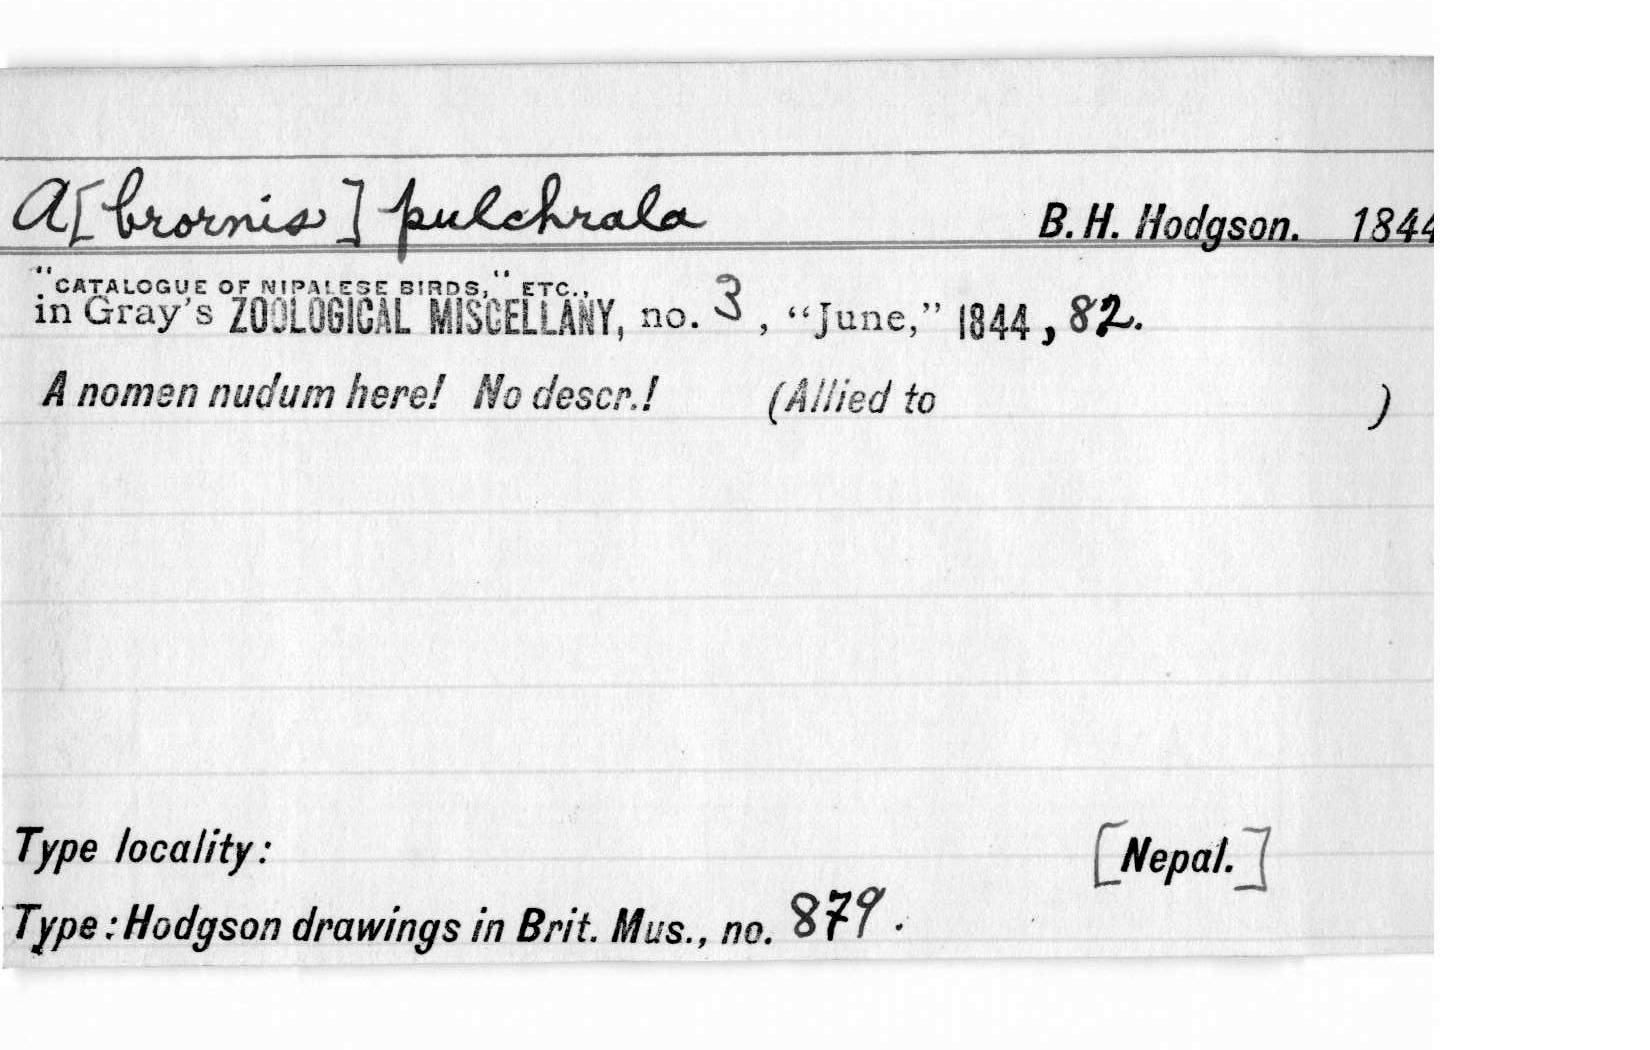 A[brornis] pulchrala B. H. Hodgson. 1844
"CATALOGUE OF NIPALESE BIRDS," ETC.,
in Gray's ZOOLOGICAL MISCELLANY, no. 3, "June," 1844, 82.
A nomen nudum here! No descr.! (Allied to )
Type locality: [Nepal.]
Type: Hodgson drawings in Brit. Mus., no. 879.